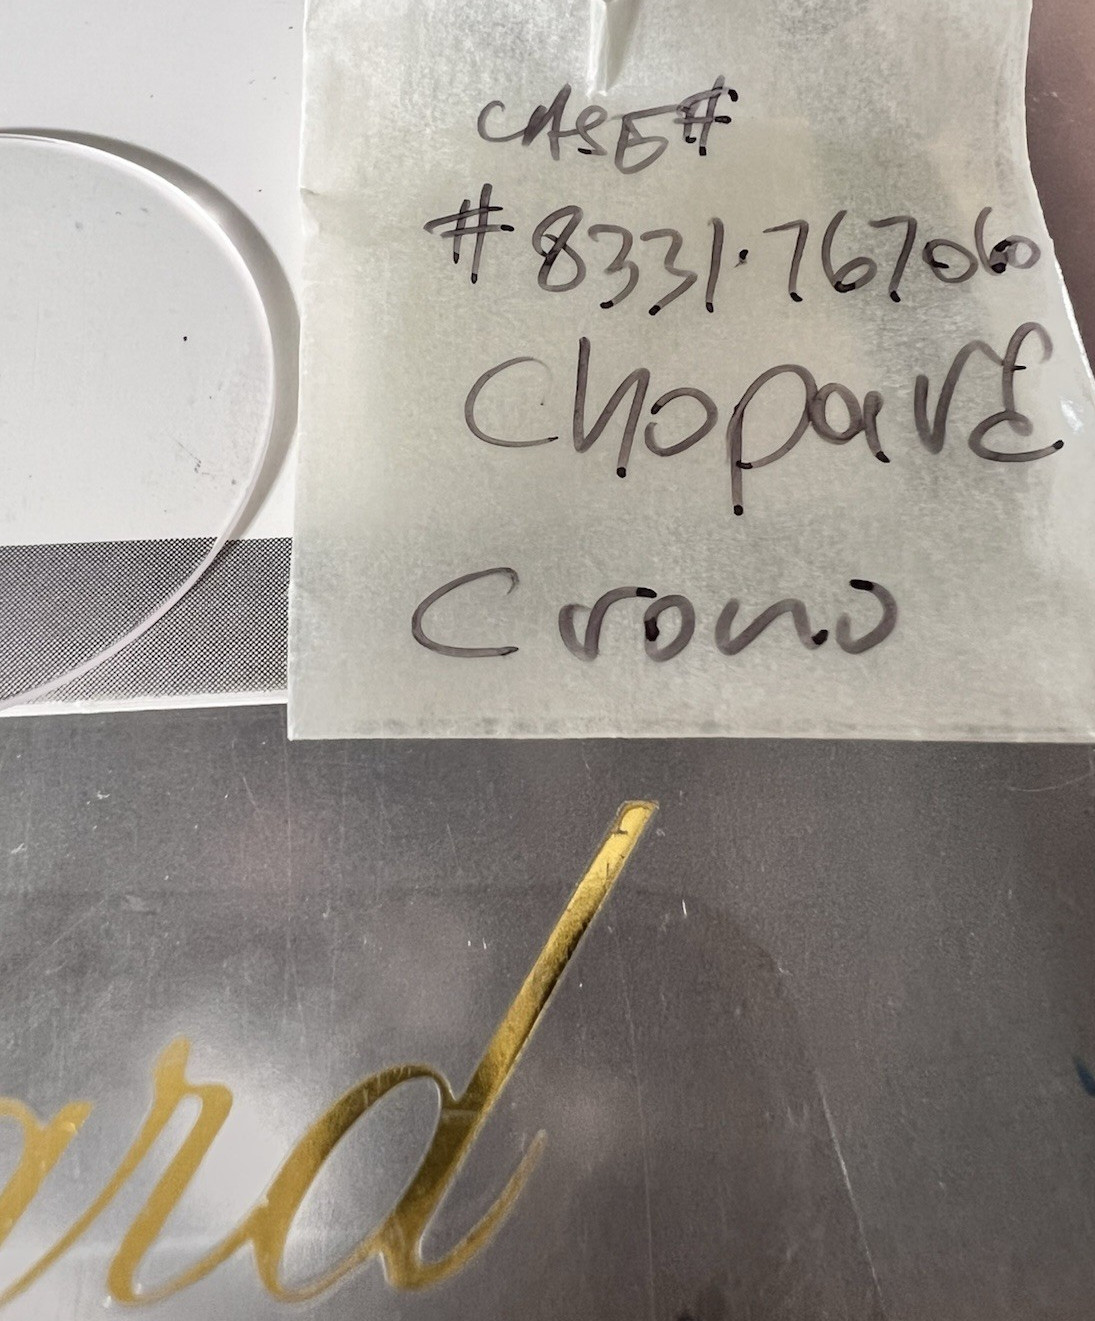 CASE#
#8331.767060
Chopard
Crono
ard